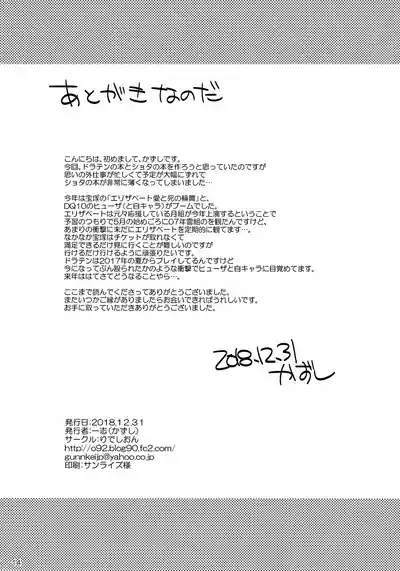 あとがきなのだ
こんにちは、初めまして、かずしです。
今回、ドラテンの本とショタの本を作ろうと思っていたのですが
思いの外仕事が忙しくて予定が大幅にずれて
ショタの本が非常に薄くなってしまいました…
今年は宝塚の「エリザベート愛と死の輪舞」と、
DQ10のヒューザ(と自キャラ)がブームでした。
エリザベートは元々応援している月組が今年上演するということで
予習のつもりで5月の始めごろに07年雪組のを観たんですけど、
あまりの衝撃に未だにエリザベートを定期的に観てます…。
なかなか宝塚はチケットが取れなくて
満足できるだけ見に行くことが難しいのですが
行けるだけ行けるように頑張りたいです。
ドラテンは2017年の夏からプレイしてるんですけど
今になってぶん殴られたかのような衝撃でヒューザと自キャラに目覚めてます。
来年ははてさてどうなることやら…。
ここまで読んでくださってありがとうございました。
またいつかご縁がありましたらお会いできればうれしいです。
お手に取っていただきありがとうございました。
2018.12.31
かずし
発行日:2018.12.31
発行者:一志(かずし)
サークル:りでしおん
http://c92.blog90.fc2.com/
gunnkeijp@yahoo.co.jp
印刷:サンライズ様
14